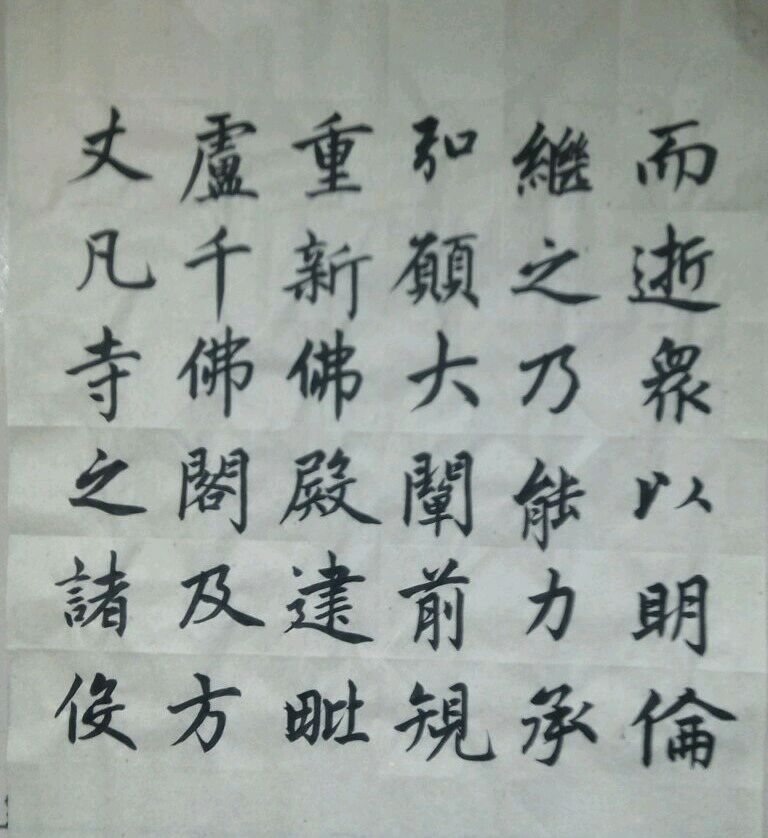 而逝衆以明倫
繼之乃能力承
弘願大闡前規
重新佛殿建毗
盧千佛閣及方
丈凡寺之諸役